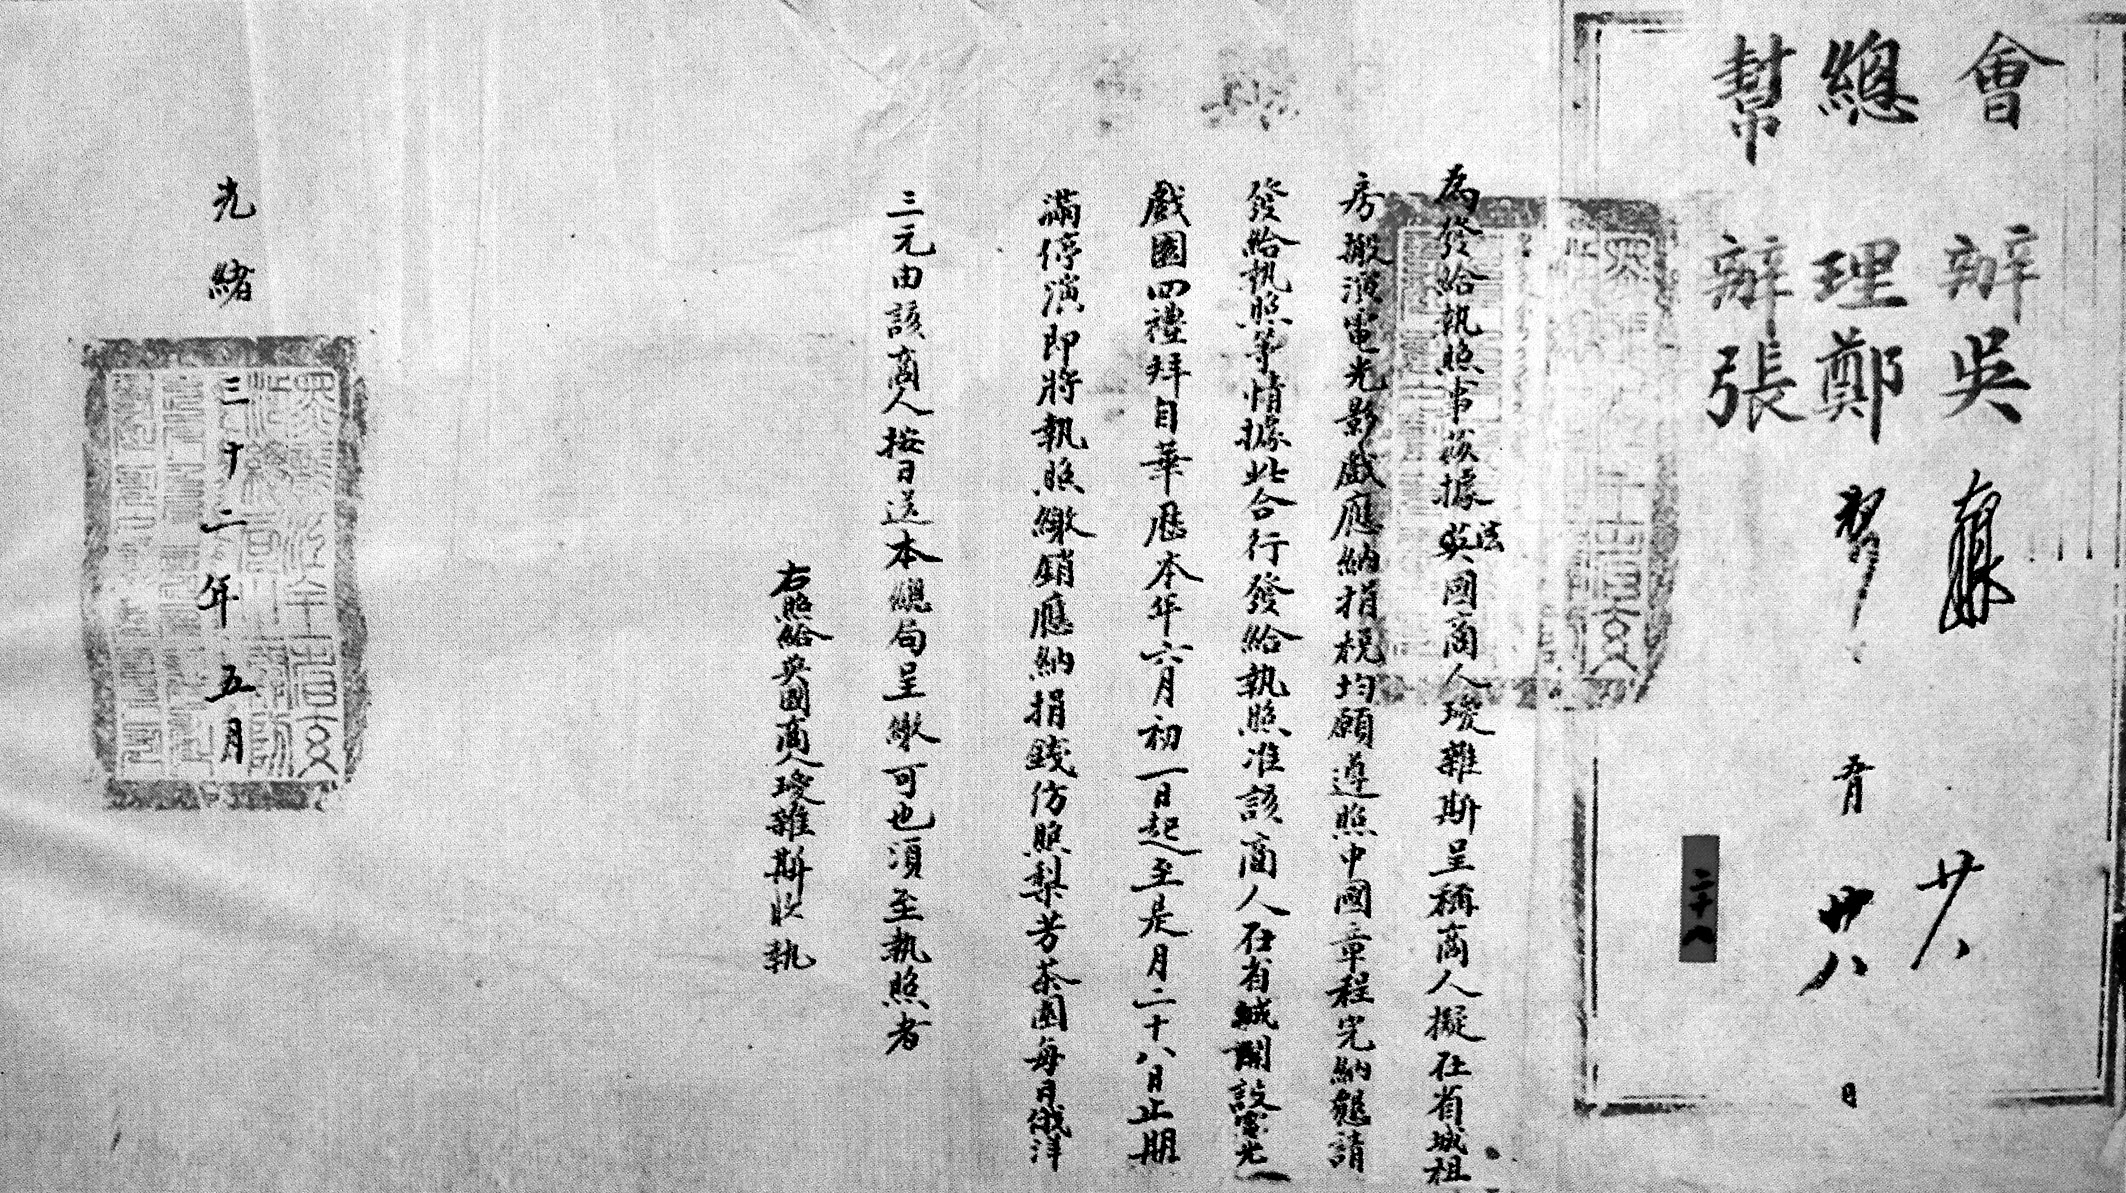 會辦吳
廿八
總理鄭
五月
廿八
日
幫辦張
二十八
為發給執照事茲據英國商人璦雜斯呈稱商人擬在省城租
法
房搬演電光影戲應納捐稅均願遵照中國章程完納懇請
發給執照等情據此合行發給執照准該商人在省城開設電光
戲園四禮拜自華歷本年六月初一日起至是月二十八日止期
滿停演即將執照繳銷應納捐錢仿照梨芳茶園每日俄洋
三元由該商人按日送本總局呈繳可也須至執照者
右照給英國商人璦雜斯收執
光緒三十二年五月